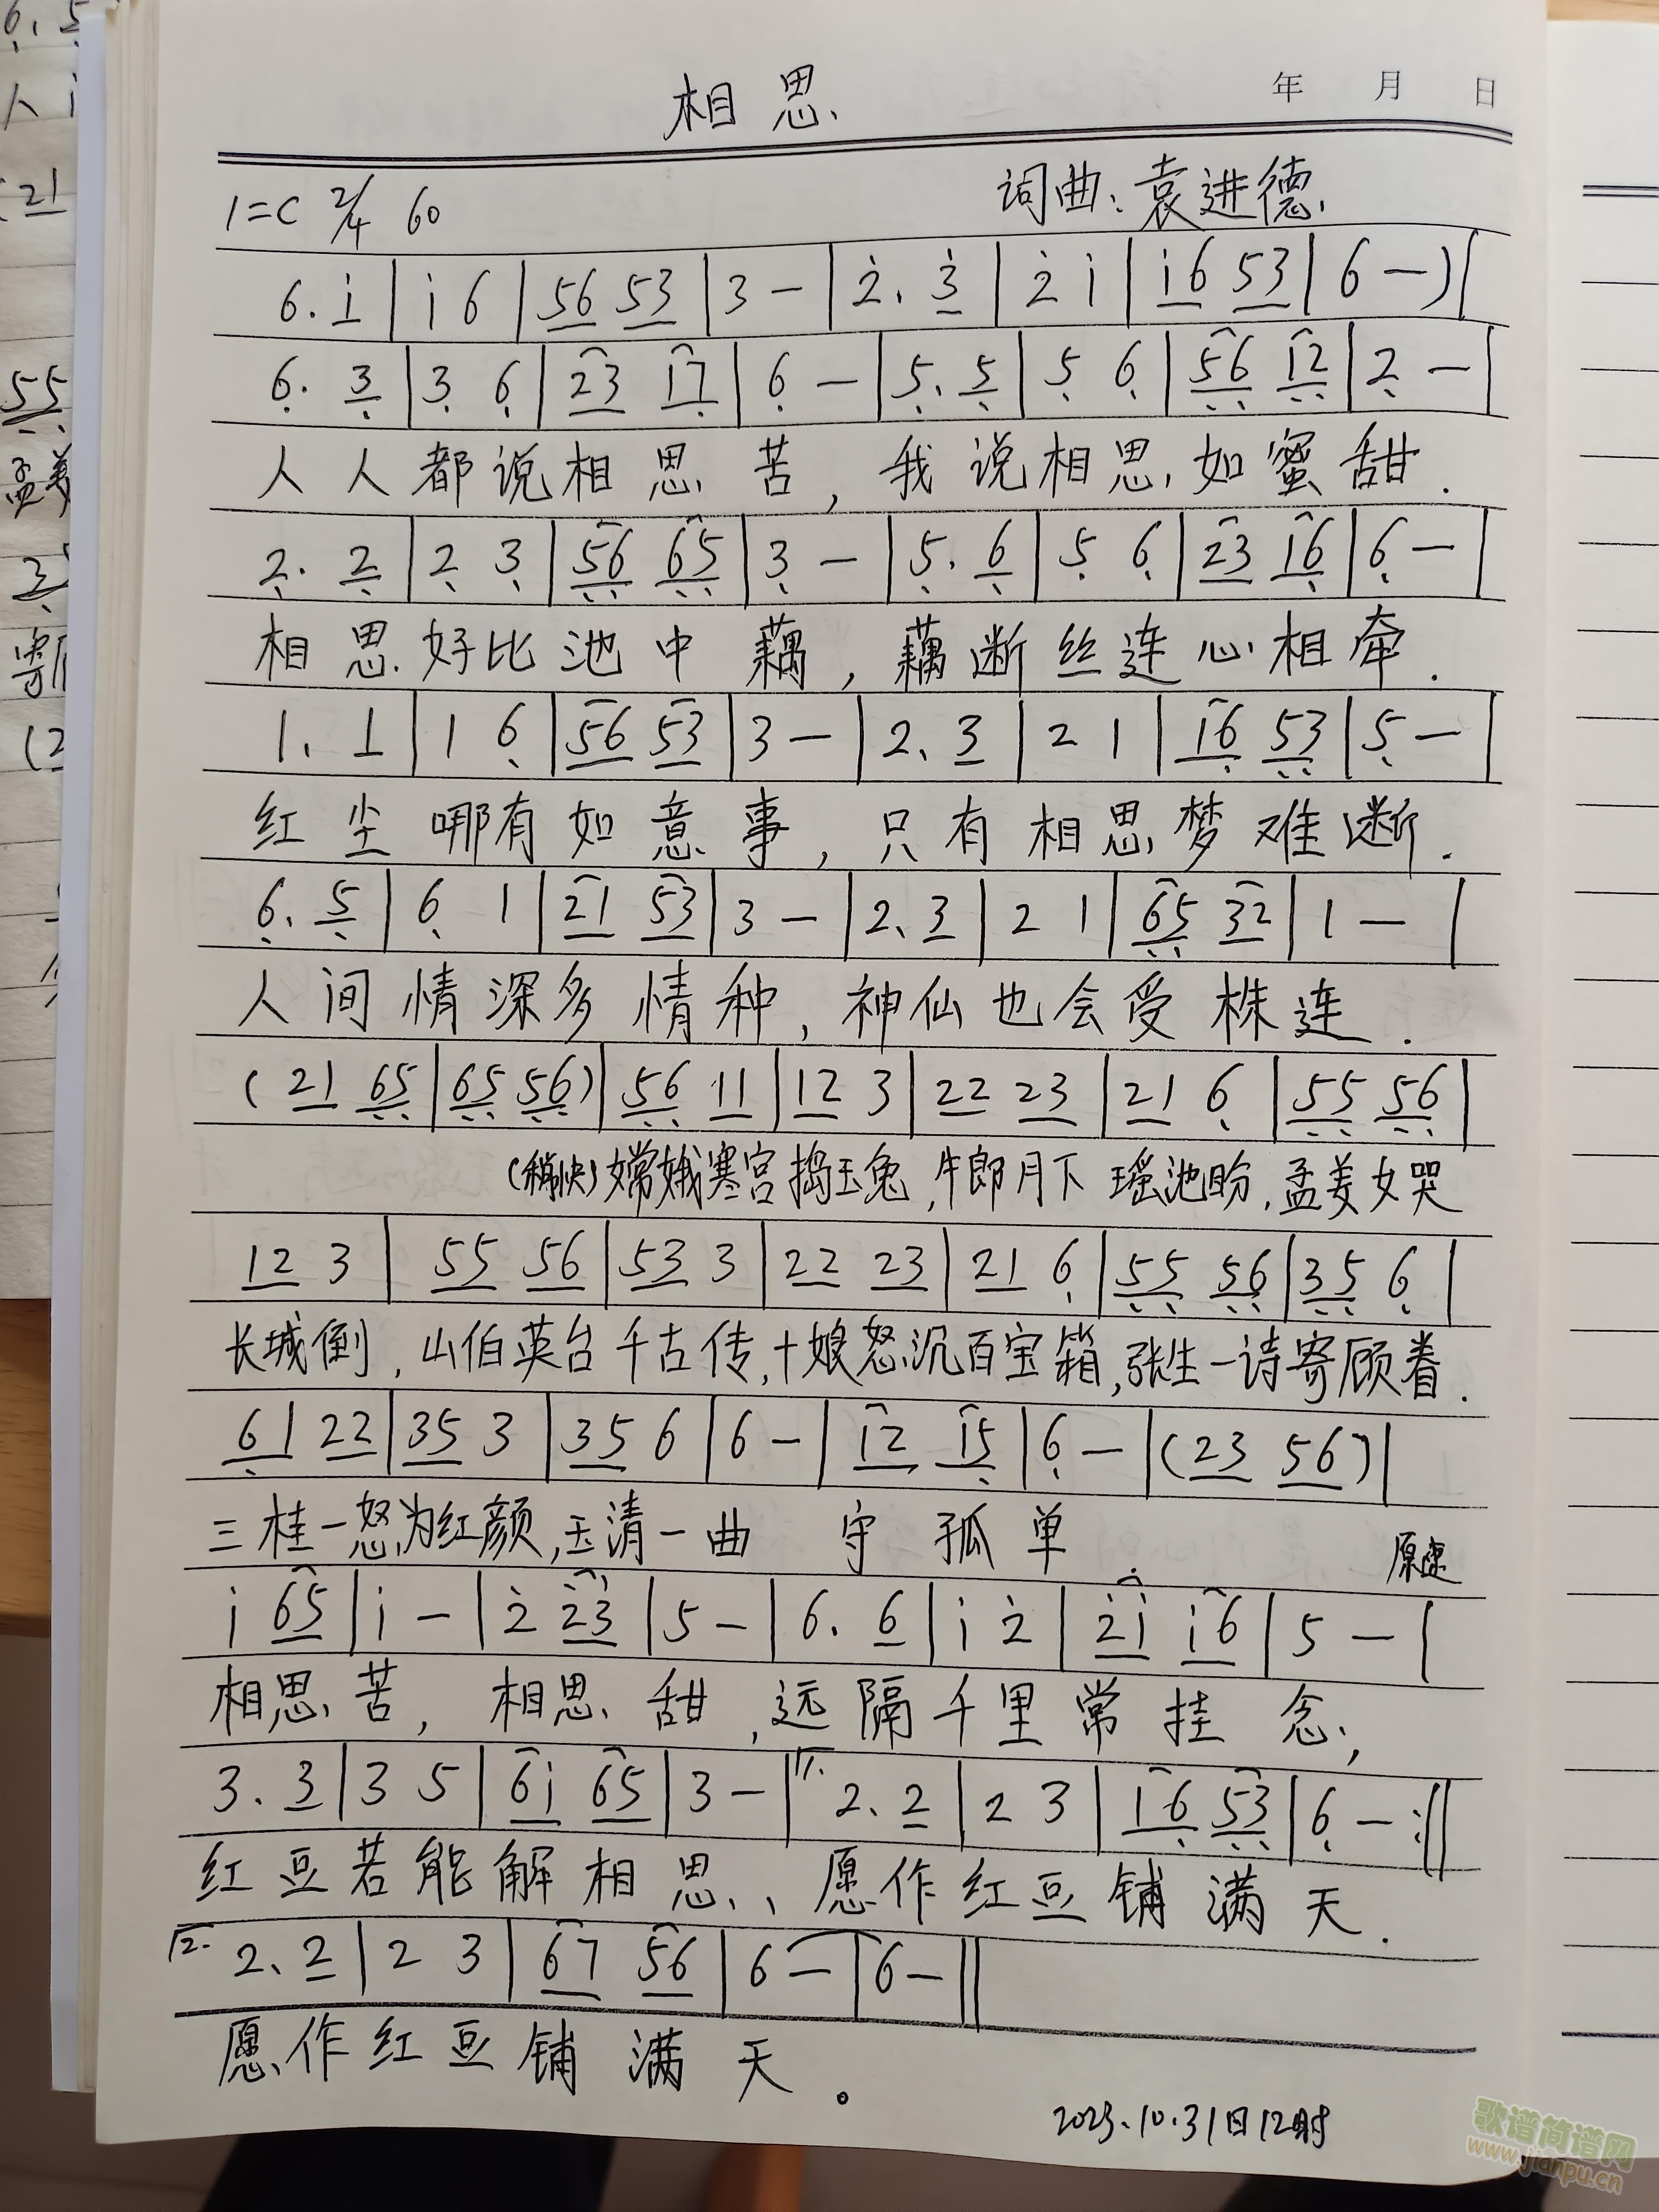 年 月 日
相思
1=C 2/4 60
词曲：袁进德
6. i | i 6 | 56 53 | 3 — | 2. 3 | 2 i | i6 53 | 6 —) |
6. 3 | 3 6 | 23 17 | 6 — | 5. 5 | 5 6 | 56 12 | 2 — |
人人都说相思苦，我说相思如蜜甜.
2. 2 | 2 3 | 56 65 | 3 — | 5. 6 | 5 6 | 23 16 | 6 — |
相思好比池中藕，藕断丝连心相牵.
1. 1 | 1 6 | 56 53 | 3 — | 2. 3 | 2 1 | 16 53 | 5 — |
红尘哪有如意事，只有相思梦难断.
6. 5 | 6 1 | 21 53 | 3 — | 2. 3 | 2 1 | 65 32 | 1 — |
人间情深多情种，神仙也会受株连.
(21 65 | 65 56) | 56 11 | 12 3 | 22 23 | 21 6 | 55 56 |
(稍快)嫦娥寒宫捣玉兔,牛郎月下瑶池盼,孟姜女哭
12 3 | 55 56 | 53 3 | 22 23 | 21 6 | 55 56 | 35 6 |
长城倒,山伯英台千古传,十娘怒沉百宝箱,张生一诗寄顾眷.
61 22 | 35 3 | 35 6 | 6 — | 12 15 | 6 — | (23 56) |
三桂一怒为红颜,玉清一曲 守孤单.
原速
i 65 | i — | 2 23 | 5 — | 6. 6 | i 2 | 2i i6 | 5 — |
相思苦，相思甜，远隔千里常挂念，
3. 3 | 3 5 | 6i 65 | 3 — | 1. 2. 2 | 2 3 | 16 53 | 6 — :||
红豆若能解相思、愿作红豆铺满天.
2. 2. 2 | 2 3 | 67 56 | 6 — | 6 — ||
愿作红豆铺满天。
2023.10.31日12时
歌谱简谱网
www.jianpu.cn